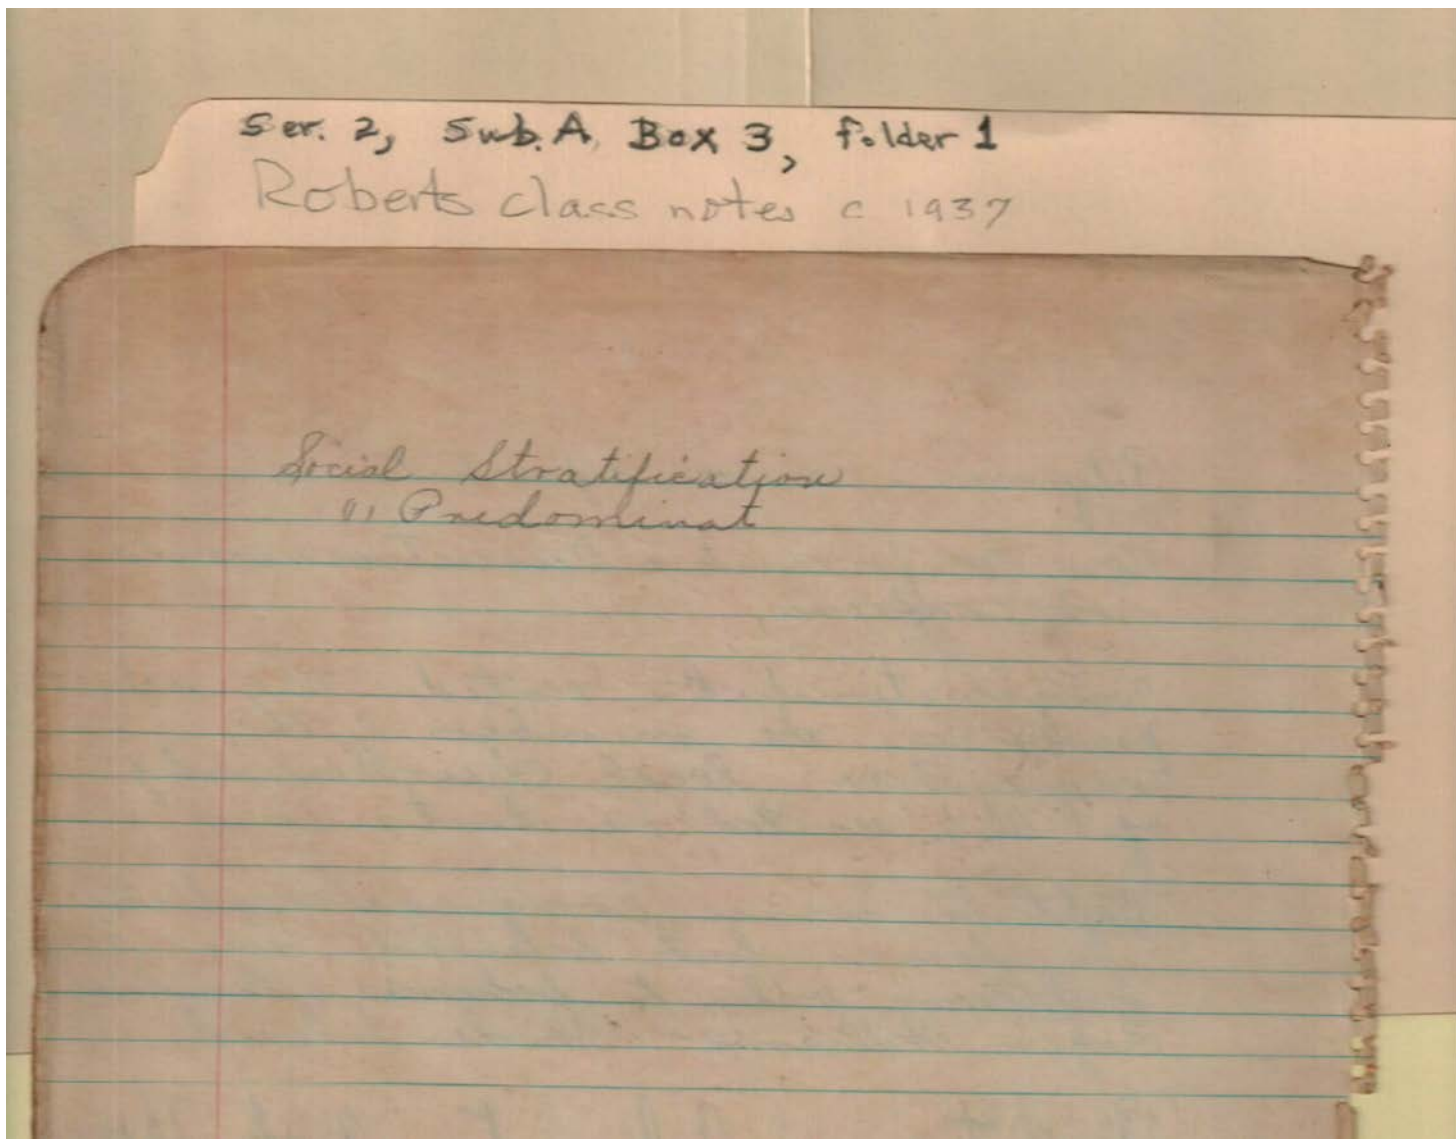 Ser. 2, Sub. A, Box 3, folder 1
Roberts class notes c 1937
Social Stratification
", Predominat